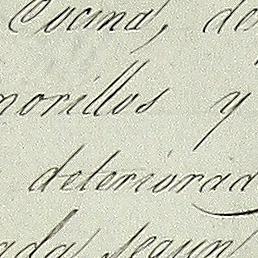 Cocina, de
morillos y
deteriorad
ada segun